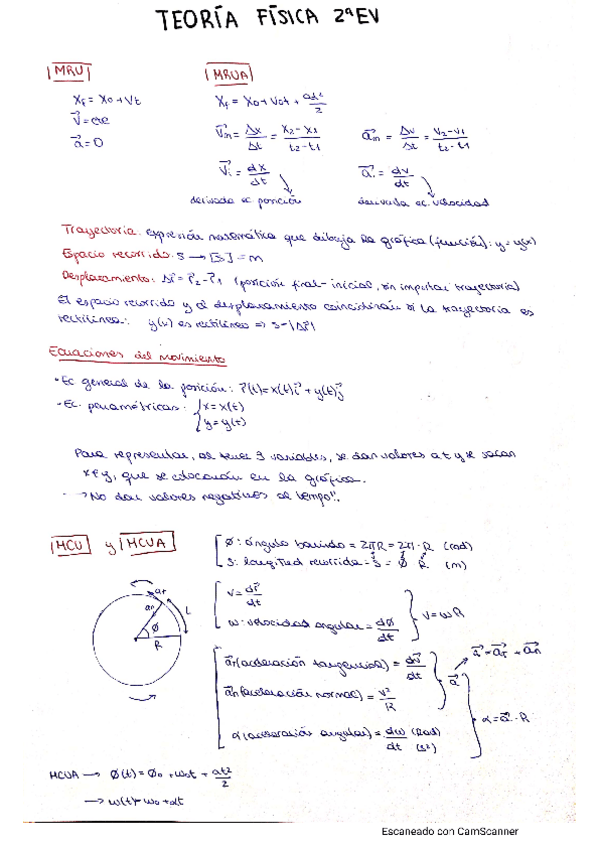 TEORÍA FÍSICA 2ªEV
MRU
MRUA
Xf = X0 + Vt
V⃗ = cte
a⃗ = 0
Xf = X0 + V0t + at²/2
V⃗m = Δx/Δt = X2-X1/t2-t1
a⃗m = Δv/Δt = V2-V1/t2-t1
V⃗i = dx/dt
a⃗i = dv/dt
derivada ec. posición
derivada ec. velocidad
Trayectoria: expresión matemática que dibuja la gráfica (función): y = y(x)
Espacio recorrido: S → [S] = m
Desplazamiento: Δr⃗ = r⃗2 - r⃗1 (posición final - inicial, sin importar trayectoria)
El espacio recorrido y el desplazamiento coincidirán si la trayectoria es
rectilínea: y(x) es rectilínea => S = |Δr⃗|
Ecuaciones del movimiento
- Ec general de la posición: r⃗(t) = x(t)i⃗ + y(t)j⃗
- Ec. paramétricas: { x = x(t)
y = y(t)
Para representar, al tener 3 variables, se dan valores a t y se sacan
x e y, que se colocarán en la gráfica.
→ No dar valores negativos al tiempo!!
MCU y MCUA
Ø: ángulo barrido = 2πR = 2π · R (rad)
S: longitud recorrida = S = Ø R (m)
aT
an
L
Ø
R
v = dr⃗/dt
ω: velocidad angular = dØ/dt
v = ωR
a⃗T (aceleración tangencial) = dv⃗/dt
a⃗n (aceleración normal) = v²/R
a⃗
a⃗ = a⃗T + a⃗n
α (aceleración angular) = dω/dt (Rad)/(s²)
α = a⃗ · R
MCUA → Ø(t) = Ø0 + ω0t + αt²/2
→ ω(t) = ω0 + αt
Escaneado con CamScanner